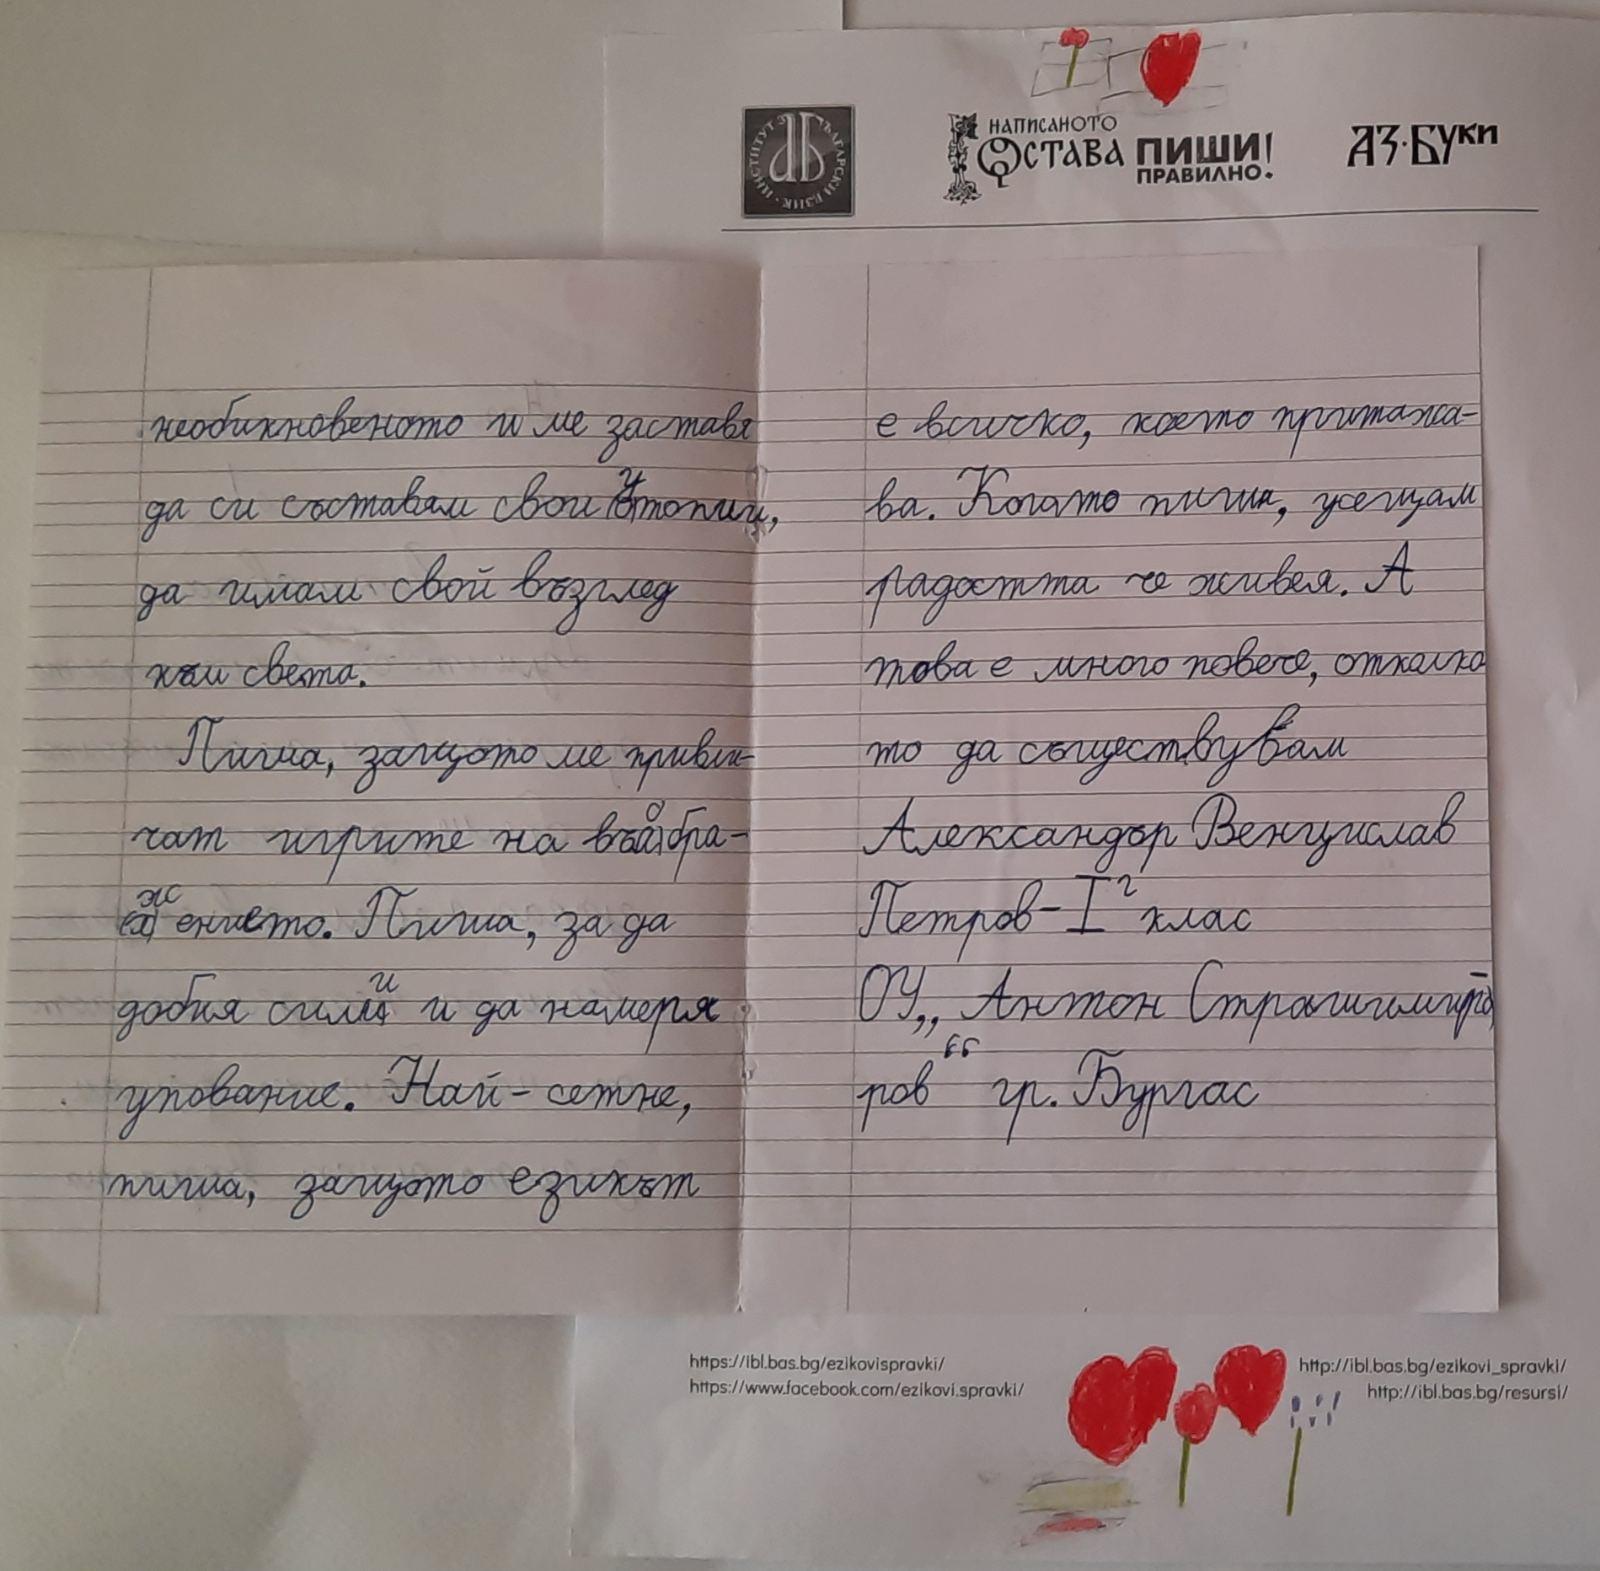 ИНСТИТУТ ЗА БЪЛГАРСКИ ЕЗИК
НАПИСАНОТО
ОСТАВА ПИШИ!
ПРАВИЛНО.
АЗ·БУКИ
необикновеното и ме заставя
да си съставям свои утопии,
да имам свой възглед
към света.
Пиша, защото ме привли-
чат игрите на въобра-
жението. Пиша, за да
добия сили и да намеря
упование. Най-сетне,
пиша, защото езикът
е всичко, което притежа-
ва. Когато пиша, усещам
радостта че живея. А
това е много повече, отколко
то да съществувам
Александър Венцислав
Петров-I г клас
ОУ„ Антон Страшимиро
ров“ гр. Бургас
https://ibl.bas.bg/ezikovispravki/
https://www.facebook.com/ezikovi.spravki/
http://ibl.bas.bg/ezikovi_spravki/
http://ibl.bas.bg/resursi/